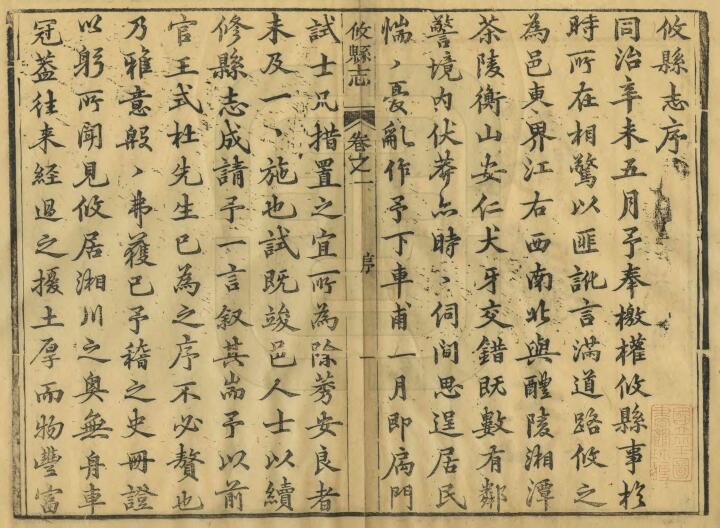 攸縣志序
同治辛未五月予奉檄權攸縣事於
時所在相驚以匪訛言滿道路攸之
為邑東界江右西南北與醴陵湘潭
茶陵衡山安仁犬牙交錯既數有鄰
警境內伏莽亦時〻伺間思逞居民
惴〻憂亂作予下車甫一月即扃門
攸縣志
卷之一
序
一
試士凡措置之宜所為除莠安良者
未及一〻施也試既竣邑人士以續
修縣志成請予一言叙其耑予以前
官王式杜先生已為之序不必贅也
乃雅意殷〻弗獲已予稽之史冊證
以躬所聞見攸居湘川之奥無舟車
冠蓋往来經過之擾土厚而物豐富